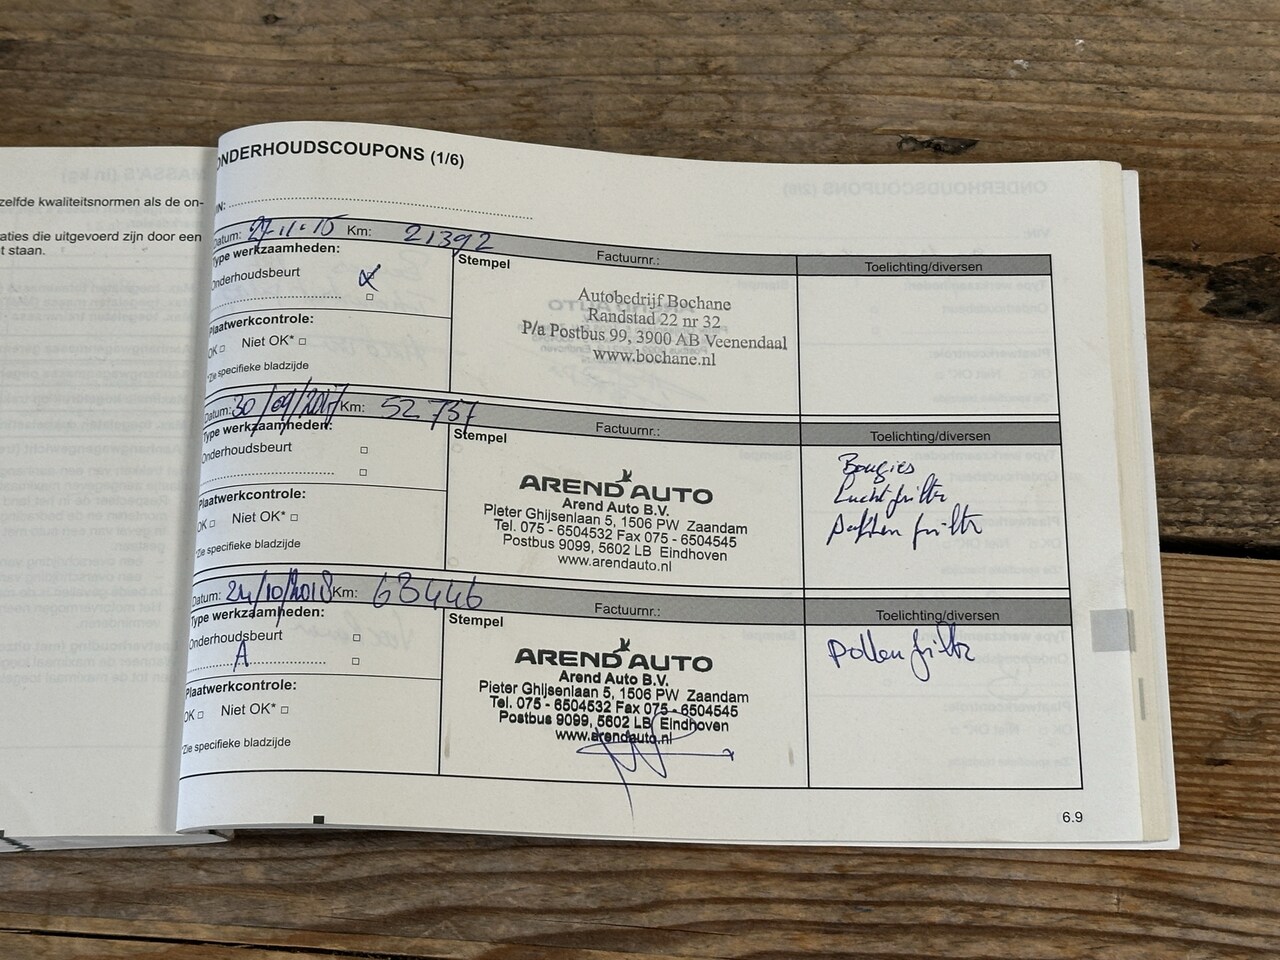 zelfde kwaliteitsnormen als de on-
aties die uitgevoerd zijn door een
t staan.
ONDERHOUDSCOUPONS (1/6)
Datum: 27-11-15 Km: 21392
Type werkzaamheden:
Onderhoudsbeurt
Plaatwerkcontrole:
OK Niet OK*
*Zie specifieke bladzijde
Stempel
Factuurnr.:
Autobedrijf Bochane
Randstad 22 nr 32
P/a Postbus 99, 3900 AB Veenendaal
www.bochane.nl
Toelichting/diversen
Datum: 30/09/2017 Km: 52 757
Type werkzaamheden:
Onderhoudsbeurt
Plaatwerkcontrole:
OK Niet OK*
*Zie specifieke bladzijde
Stempel
Factuurnr.:
AREND AUTO
Arend Auto B.V.
Pieter Ghijsenlaan 5, 1506 PW Zaandam
Tel. 075 - 6504532 Fax 075 - 6504545
Postbus 9099, 5602 LB Eindhoven
www.arendauto.nl
Toelichting/diversen
Bougies
Luchtfiltr
filtr
Datum: 24/10/2018 Km: 63446
Type werkzaamheden:
Onderhoudsbeurt
A
Plaatwerkcontrole:
OK Niet OK*
*Zie specifieke bladzijde
Stempel
Factuurnr.:
AREND AUTO
Arend Auto B.V.
Pieter Ghijsenlaan 5, 1506 PW Zaandam
Tel. 075 - 6504532 Fax 075 - 6504545
Postbus 9099, 5602 LB Eindhoven
www.arendauto.nl
Toelichting/diversen
Pollen filtr
6.9